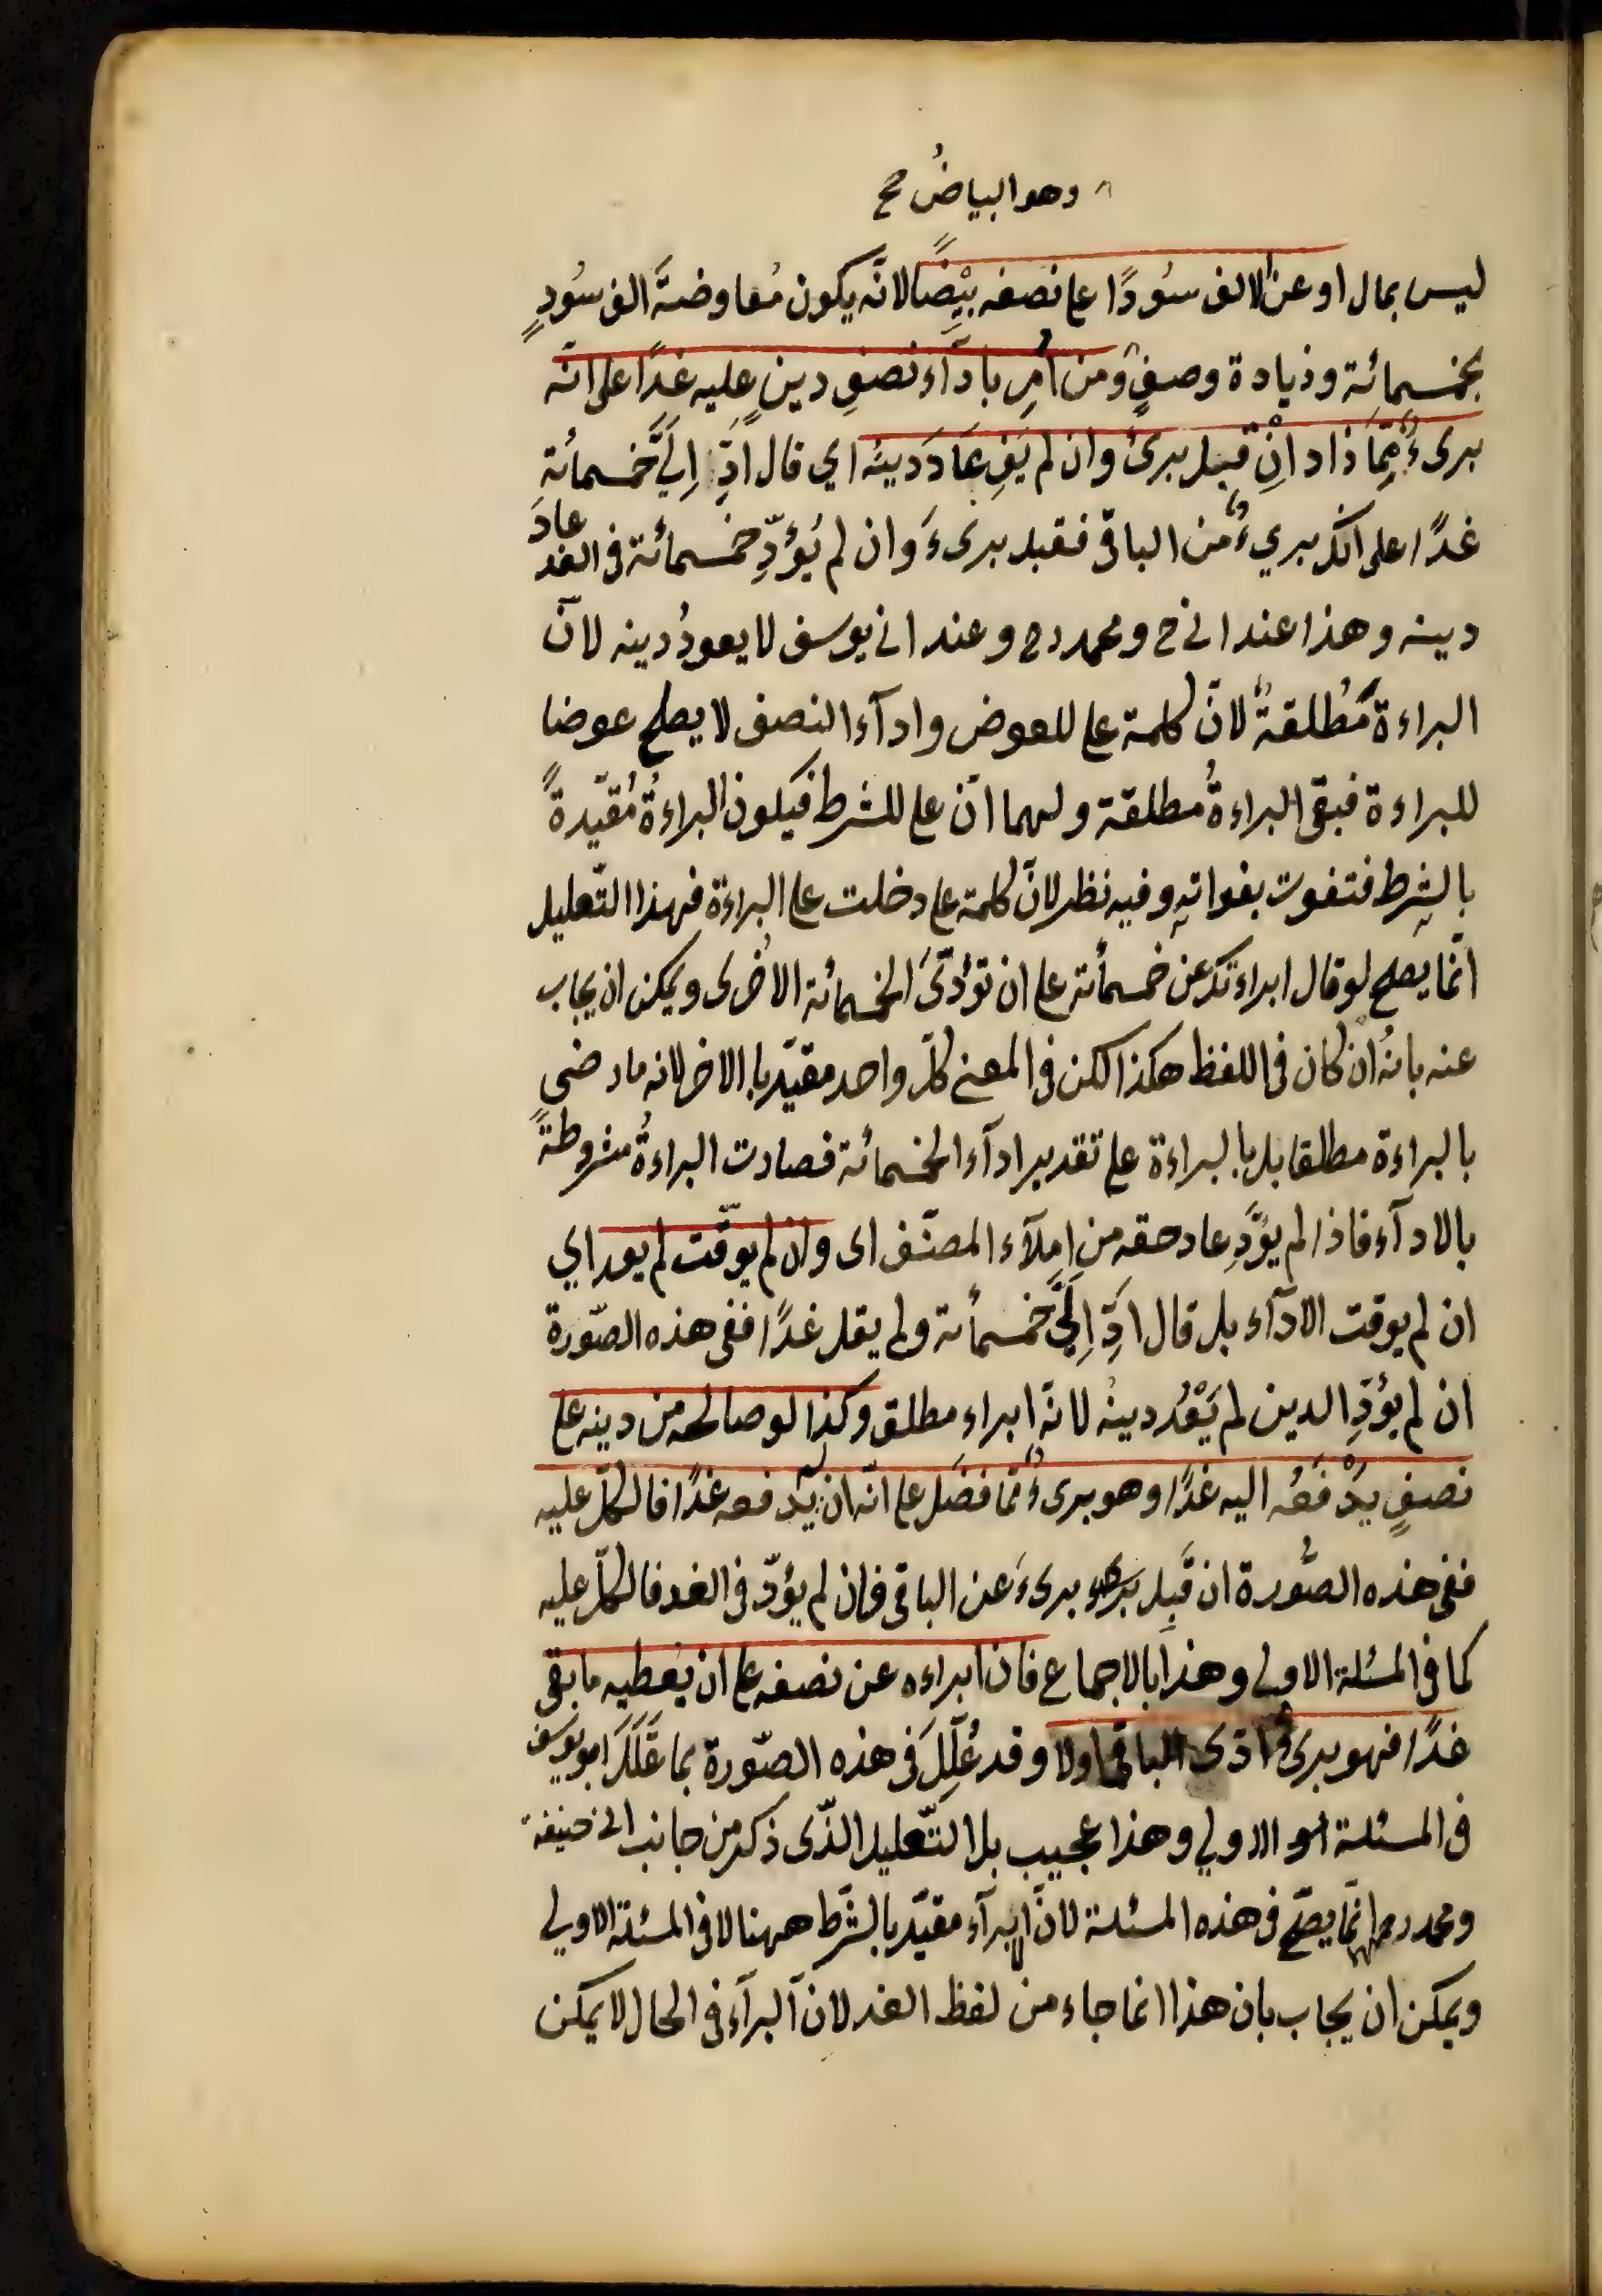 وهو البياضُ صح
ليس بمال او عن الالف سُودًا على نصفه بِيْضًا لانّه يكون مُعاوضةَ الف سُودٍ
بخمسمائة وزيادة وصفٍ ومن اُمِر باداۤء نصفِ دينٍ عليه غدًا على انّه
برىءٌ مِمّا زاد انْ قبل برئ وان لم يَفِ عَادَ دَينُه اي قال اَدِّ اِلَيَّ خمسمائةٍ
غدًا على انّك بريءٌ من الباقى فقبل برىءَ وان لم يُؤدِّ خمسمائة فى الغد عادَ
دينه وهذا عند ابى ح ومحمد رح وعند ابى يوسف لا يعودُ دينه لانّ
البراءة مُطلقةٌ لانّ كلمة على للعوض واداۤء النصف لا يصلح عوضا
للبراءة فبقى البراءةُ مطلقة ولهما انّ على للشرط فيكون البراءةُ مُقيّدةً
بالشرط فتفوت بفواتِه وفيه نظر لانّ كلمة على دخلت على البراءة فهذا التّعليل
انّما يصلح لو قال ابراءتك عن خمسمائة على ان تؤدّىَ الخمسمائة الاُخرى ويمكن ان يجاب
عنه بانهُ ان كان فى اللفظ هكذا لكن فى المعنى كلّ واحد مقيّد با الاخر لانه ما رضى
بالبراءة مطلقا بل بالبراءة على تقدير اداۤء الخمسمائة فصارت البراءةُ مشروطةً
بالاداۤء فاذا لم يؤدِّ عاد حقه من اِملاۤء المصنّف اى وان لم يوقّت لم يعد اي
ان لم يوقت الاداۤء بل قال ادِّ اِلَيَّ خمسمائة ولم يقل غدًا ففى هذه الصّورة
ان لم يؤدِّ الدين لم يَعُد دينهُ لانّه ابراء مطلق وكذا لو صالحه من دينه على
نصفٍ يدْفَعُه اليه غدًا وهو برىءٌ ممّا فضَل على انّه ان لم يدفعه غدًا فالكلّ عليه
ففى هذه الصّورة ان قَبِل برىءَ عن الباقى فان لم يؤدّ فى الغد فالكلّ عليه
كما فى المسئلة الاولى وهذا بالاجماع فان ابراءه عن نصفه على ان يُعطيه ما بقى
غدًا فهو برىءٌ ادّى الباقى اولا وقد عُلِّلَ فى هذه الصّورة بما عَلَّلَ ابو يوسف
فى المسئلة الاولي وهذا عجيب بل التّعليل الذّى ذكر من جانب ابى حنيفة
ومحمد رح انّما يصحّ فى هذه المسئلة لانّ البراۤء مقيّد بالشّرط ههنا لا فى المسئلة الاولي
ويمكن ان يجاب بان هذا انما جاء من لفظ الغد لان البراۤء فى الحال لا يمكن